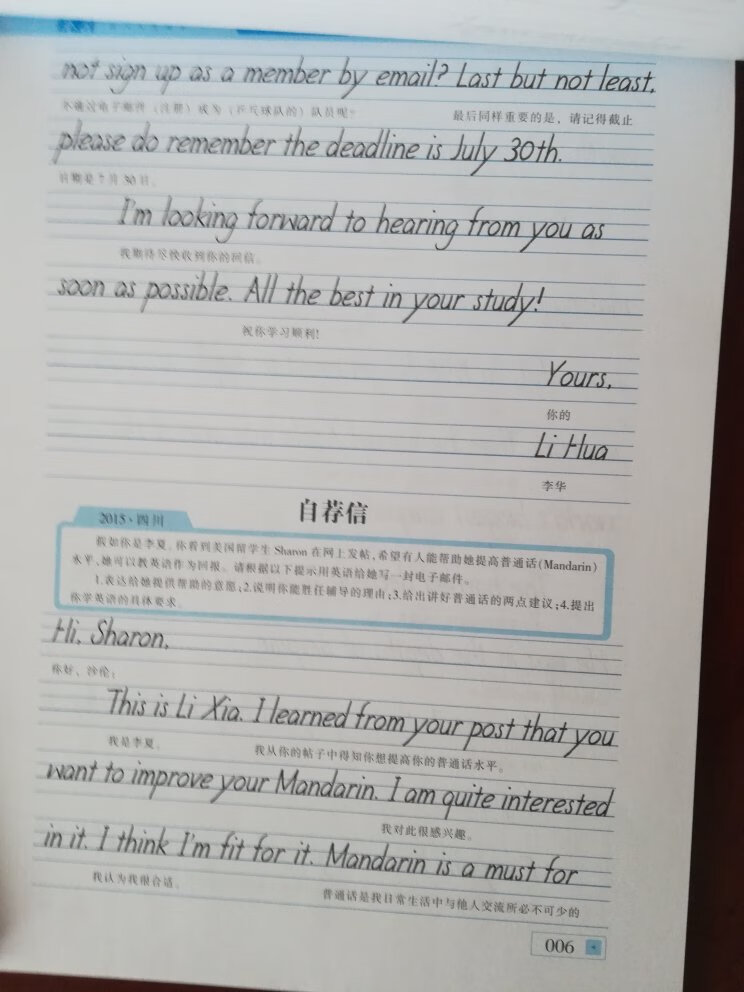 not sign up as a member by email? Last but not least,
不通过电子邮件（注册）成为（乒乓球队的）队员呢？ 最后同样重要的是，请记得截止
please do remember the deadline is July 30th.
日期是7月30日。
I'm looking forward to hearing from you as
我期待尽快收到你的回信。
soon as possible. All the best in your study!
祝你学习顺利！
Yours,
你的
Li Hua
李华
自荐信
2015·四川
假如你是李夏，你看到美国留学生Sharon在网上发帖，希望有人能帮助她提高普通话(Mandarin)
水平，她可以教英语作为回报。请根据以下提示用英语给她写一封电子邮件。
1.表达给她提供帮助的意愿；2.说明你能胜任辅导的理由；3.给出讲好普通话的两点建议；4.提出
你学英语的具体要求。
Hi, Sharon,
你好，沙伦：
This is Li Xia. I learned from your post that you
我是李夏。 我从你的帖子中得知你想提高你的普通话水平。
want to improve your Mandarin. I am quite interested
我对此很感兴趣。
in it. I think I'm fit for it. Mandarin is a must for
我认为我很合适。 普通话是我日常生活中与他人交流所必不可少的
006